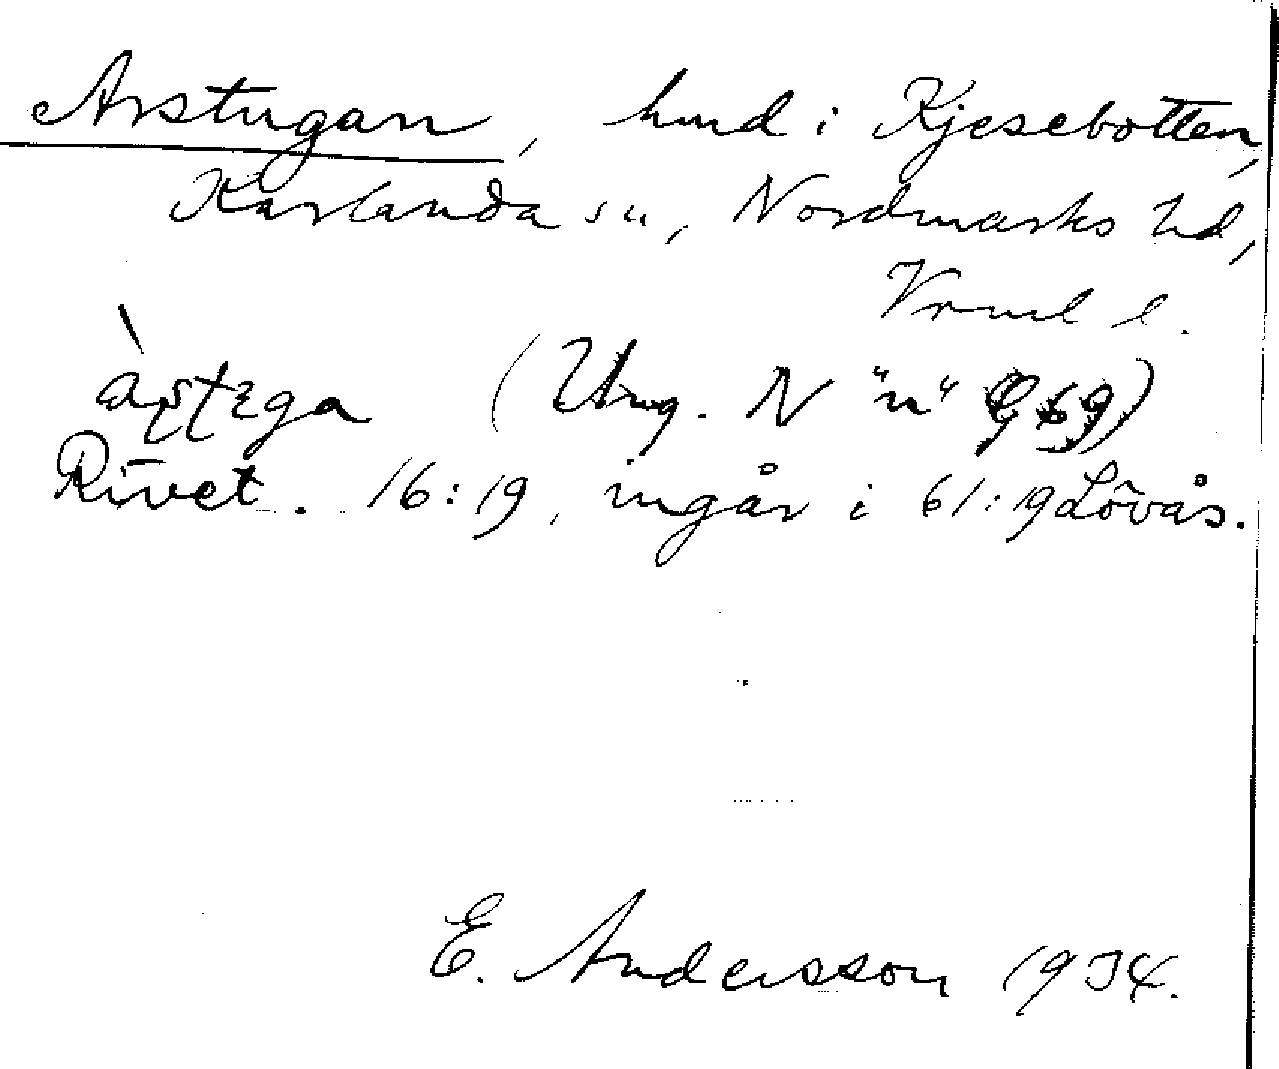 Arstugan, hmd i Kjesebotten,
Karlanda sn, Nordmarks hd,
Vrml l.
(Ung. N "n" G 69)
Rivet. 16:19, ingår i 61:19 Lövås.
E. Andersson 1934.